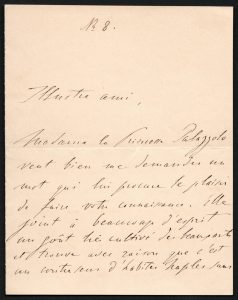 No 8.
Illustre ami,
Madame la Princesse Palazzolo
veut bien me demander un
mot qui lui procure le plaisir
de faire votre connaissance. Elle
joint à beaucoup d'esprit
un goût très cultivé des beaux arts
et trouve avec raison que c'est
un contresens d'habiter Naples sans